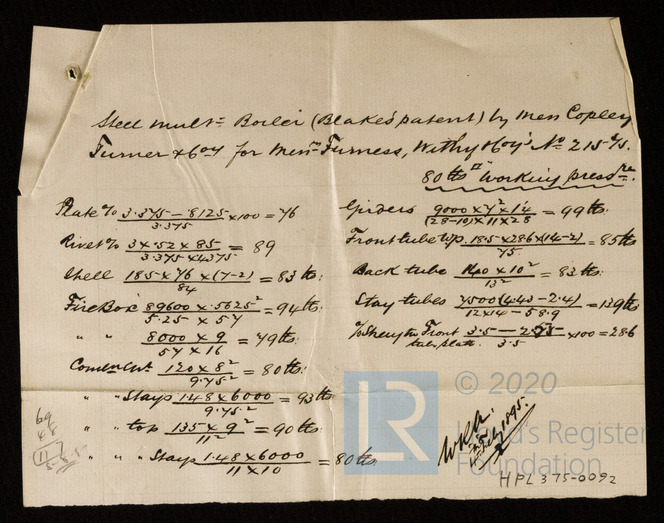 Steel mult= Boiler (Blake's patent) by Mess Copley
Turner & Coy for Messrs Furness, Withy & Coy's No 215 4/5.
80 lbs □" working pressre.
Plate % 3.375 - .8125 / 3.375 x 100 = 76
Rivet % 3 x .52 x 85 / 3.375 x .4375 = 89
Shell 185 x 76 x (7-2) / 84 = 83 lbs:
Fire Box 89600 x .5625² / 5.25 x 57 = 94 lbs:
" " 8000 x 9 / 57 x 16 = 79 lbs:
Comn Cht 120 x 8² / 9.75² = 80 lbs:
" " Stays 1.48 x 6000 / 9.75² = 93 lbs
" " top 135 x 9² / 11² = 90 lbs:
" " " Stays 1.48 x 6000 / 11 x 10 = 80 lbs:
Girders 9000 x 7² x 1¼ / (28-10) x 11 x 28 = 99 lbs:
Front tube top. 185 x 28.6 x (14-2) / 75 = 85 lbs
Back tube 140 x 10² / 13² = 82 lbs:
Stay tubes 7500 (4.43 - 2.4) / 12 x 14 - 58.9 = 139 lbs
% Strength Front tube plate. 3.5 - 2.5 / 3.5 x 100 = 28.6
July 1895.
HPL375-0092
LR © 2020
Lloyd's Register
Foundation